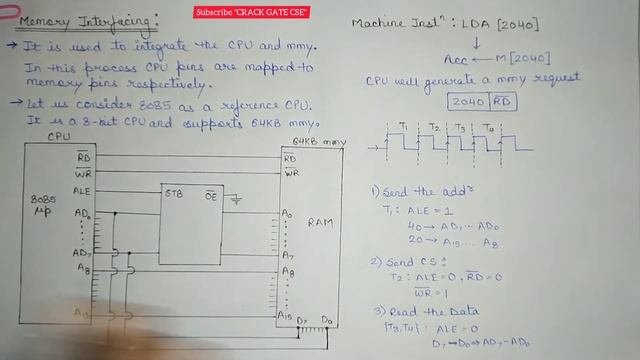 Subscribe "CRACK GATE CSE"
Memory Interfacing:
→ It is used to integrate the CPU and mmy.
In this process CPU pins are mapped to
memory pins respectively.
→ Let us consider 8085 as a reference CPU.
It is a 8-bit CPU and supports 64KB mmy.
CPU
64KB mmy
RD
RD
WR
WR
ALE
STB
OE
8085
μp
AD0
A0
RAM
AD7
A7
A8
A8
A15
A15
D7
D0
Machine Instⁿ: LDA [2040]
↓
Acc ← M [2040]
CPU will generate a mmy request
2040 RD
T1 T2 T3 T4
1) Send the addʳ
T1: ALE = 1
40 → AD7 ... AD0
20 → A15 ... A8
2) Send CS:
T2: ALE = 0, RD = 0
WR = 1
3) Read the Data
{T3, T4}: ALE = 0
D7 → D0 ⇒ AD7 - AD0